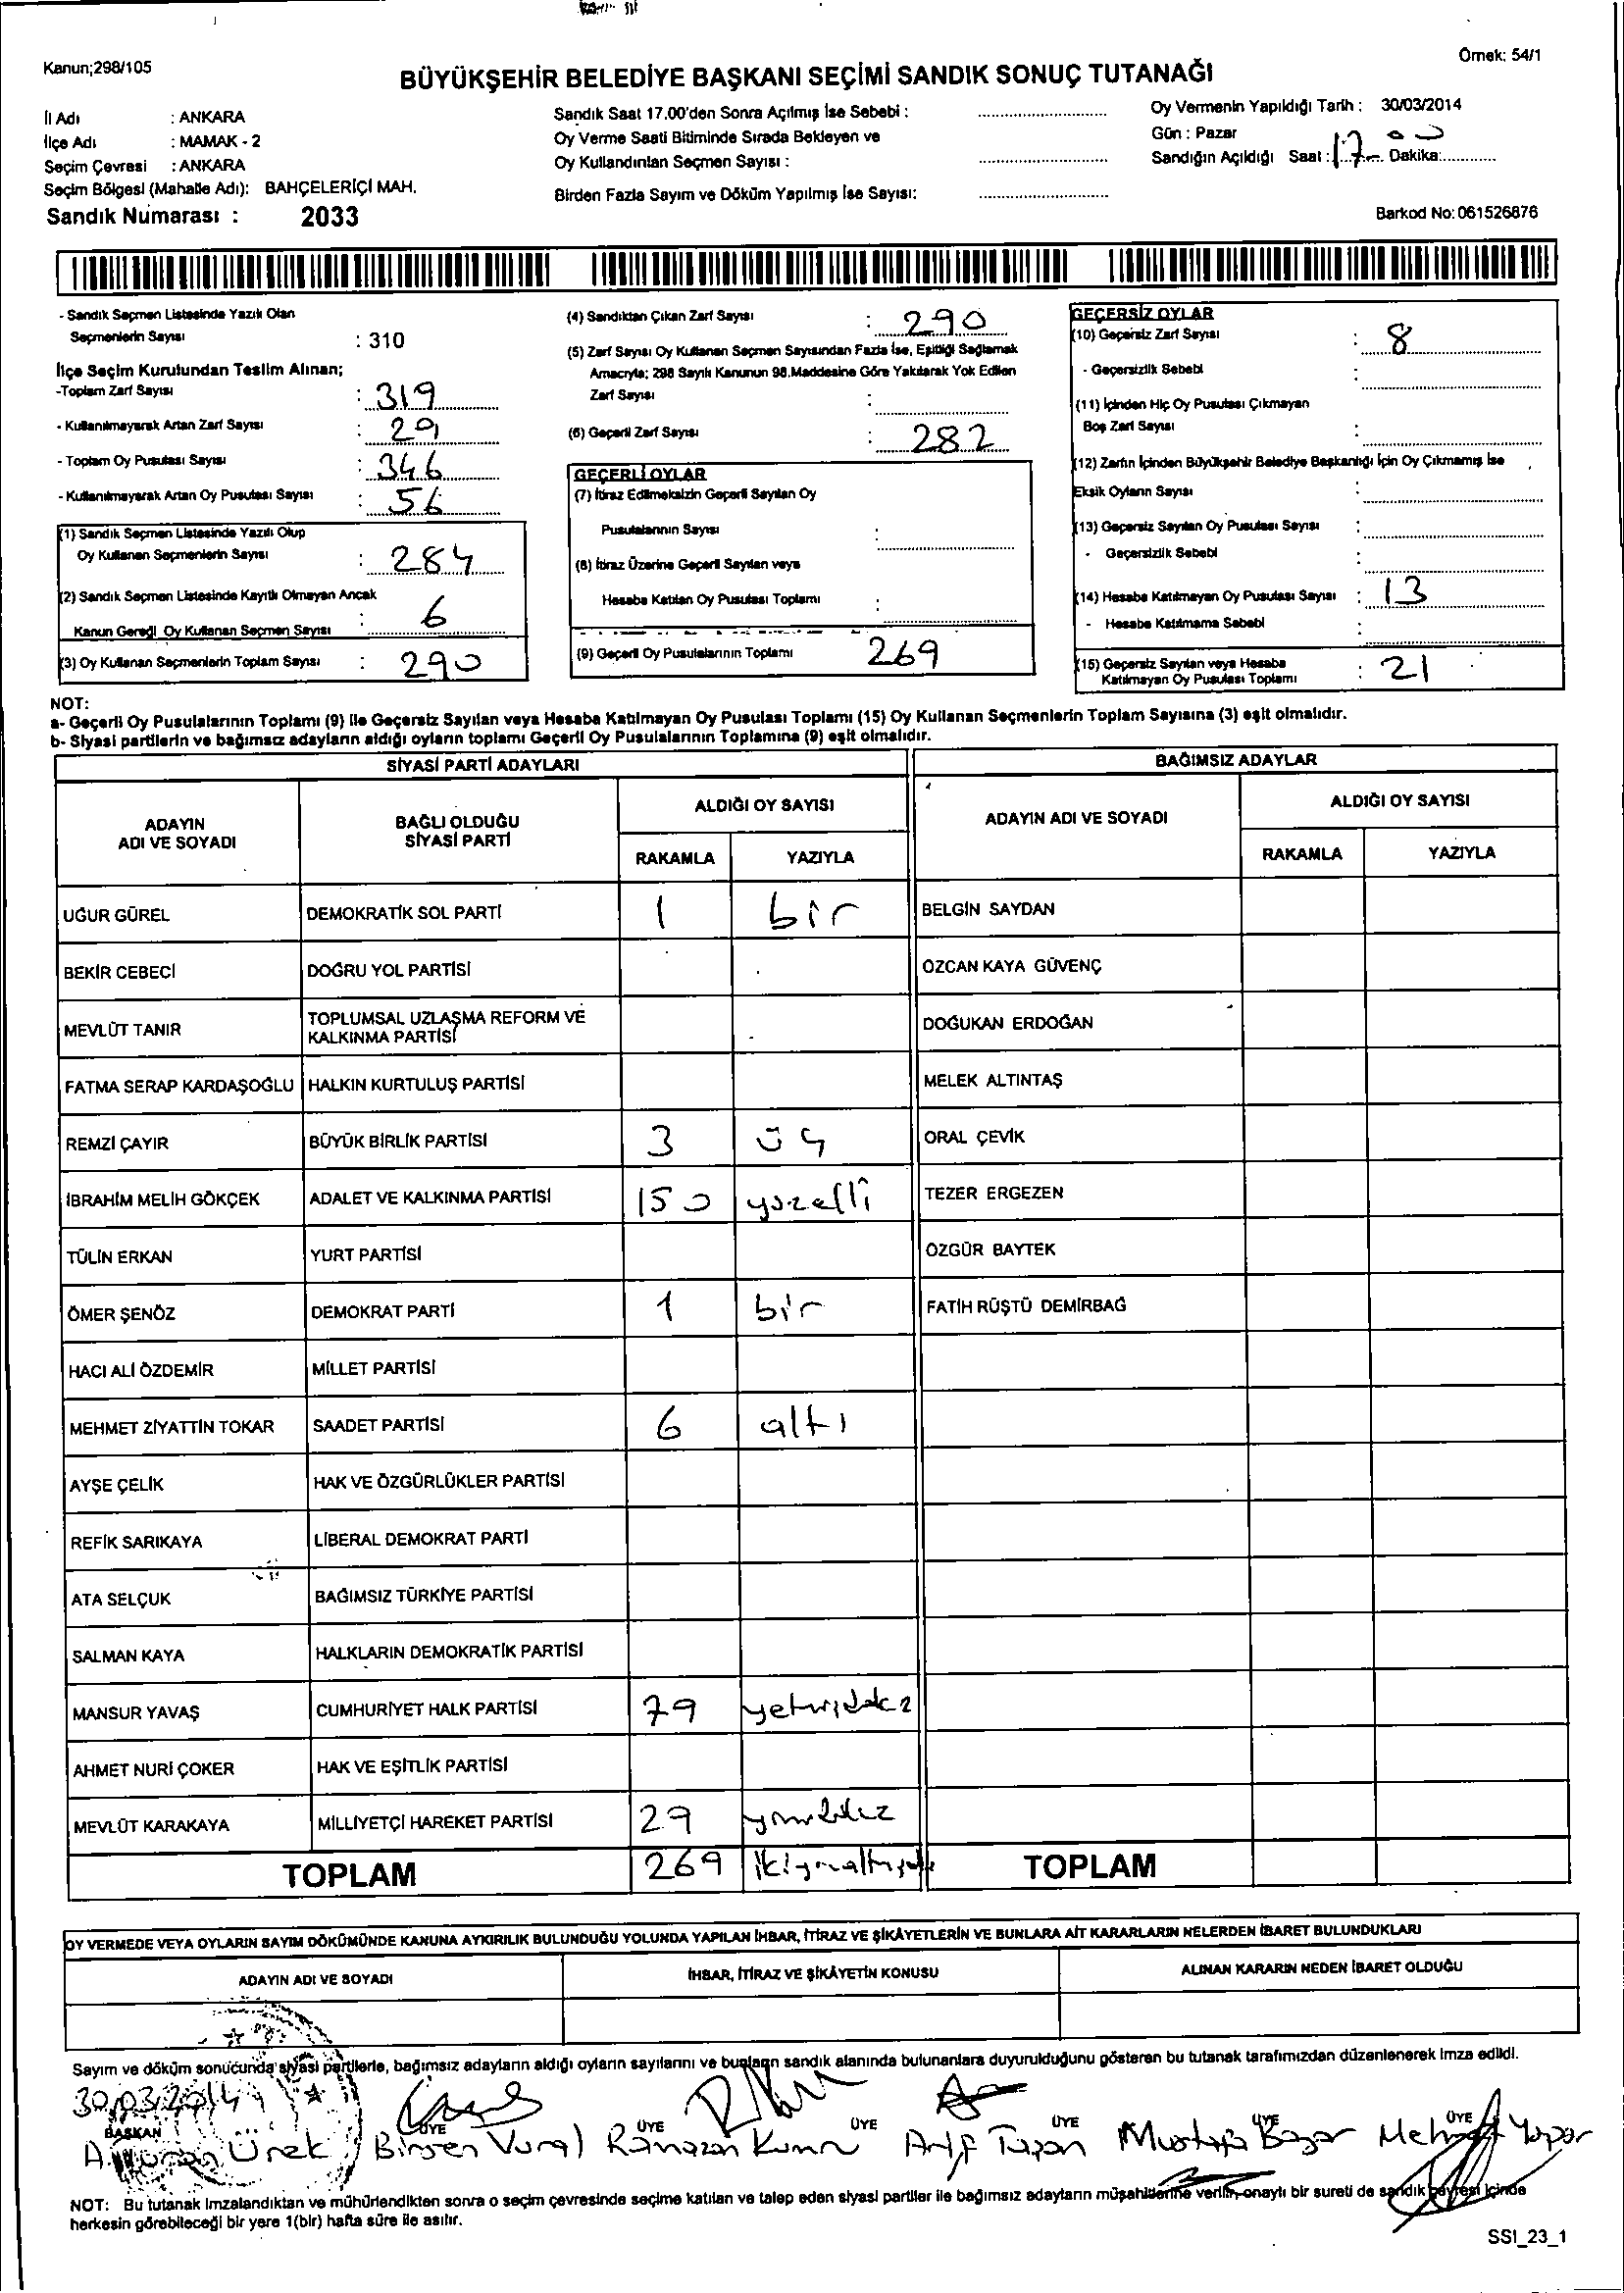 Kanun;298/105
Örnek: 54/1
BÜYÜKŞEHİR BELEDİYE BAŞKANI SEÇİMİ SANDIK SONUÇ TUTANAĞI
İl Adı : ANKARA
İlçe Adı : MAMAK - 2
Seçim Çevresi : ANKARA
Seçim Bölgesi (Mahalle Adı): BAHÇELERİÇİ MAH.
Sandık Numarası : 2033
Sandık Saat 17.00'den Sonra Açılmış İse Sebebi :
Oy Verme Saati Bitiminde Sırada Bekleyen ve
Oy Kullandırılan Seçmen Sayısı :
Birden Fazla Sayım ve Döküm Yapılmış İse Sayısı:
Oy Vermenin Yapıldığı Tarih : 30/03/2014
Gün : Pazar
Sandığın Açıldığı Saat : 17 Dakika: 00
Barkod No: 061526876
- Sandık Seçmen Listesinde Yazılı Olan
Seçmenlerin Sayısı : 310
İlçe Seçim Kurulundan Teslim Alınan;
-Toplam Zarf Sayısı : 319
- Kullanılmayarak Artan Zarf Sayısı : 29
- Toplam Oy Pusulası Sayısı : 346
- Kullanılmayarak Artan Oy Pusulası Sayısı : 56
(1) Sandık Seçmen Listesinde Yazılı Olup
Oy Kullanan Seçmenlerin Sayısı : 284
(2) Sandık Seçmen Listesinde Kayıtlı Olmayan Ancak
Kanun Gereği Oy Kullanan Seçmen Sayısı : 6
(3) Oy Kullanan Seçmenlerin Toplam Sayısı : 290
(4) Sandıktan Çıkan Zarf Sayısı : 290
(5) Zarf Sayısı Oy Kullanan Seçmen Sayısından Fazla İse, Eşitliği Sağlamak
Amacıyla; 298 Sayılı Kanunun 98.Maddesine Göre Yakılarak Yok Edilen
Zarf Sayısı :
(6) Geçerli Zarf Sayısı : 282
GEÇERLİ OYLAR
(7) İtiraz Edilmeksizin Geçerli Sayılan Oy
Pusulalarının Sayısı :
(8) İtiraz Üzerine Geçerli Sayılan veya
Hesaba Katılan Oy Pusulası Toplamı :
(9) Geçerli Oy Pusulalarının Toplamı 269
GEÇERSİZ OYLAR
(10) Geçersiz Zarf Sayısı : 8
- Geçersizlik Sebebi :
(11) İçinden Hiç Oy Pusulası Çıkmayan
Boş Zarf Sayısı :
(12) Zarfın İçinden Büyükşehir Belediye Başkanlığı İçin Oy Çıkmamış İse
Eksik Oyların Sayısı :
(13) Geçersiz Sayılan Oy Pusulası Sayısı :
- Geçersizlik Sebebi :
(14) Hesaba Katılmayan Oy Pusulası Sayısı : 13
- Hesaba Katılmama Sebebi :
(15) Geçersiz Sayılan veya Hesaba
Katılmayan Oy Pusulası Toplamı : 21
NOT:
a- Geçerli Oy Pusulalarının Toplamı (9) ile Geçersiz Sayılan veya Hesaba Katılmayan Oy Pusulası Toplamı (15) Oy Kullanan Seçmenlerin Toplam Sayısına (3) eşit olmalıdır.
b- Siyasi partilerin ve bağımsız adayların aldığı oyların toplamı Geçerli Oy Pusulalarının Toplamına (9) eşit olmalıdır.
SİYASİ PARTİ ADAYLARI BAĞIMSIZ ADAYLAR
ADAYIN ADI VE SOYADI BAĞLI OLDUĞU SİYASİ PARTİ ALDIĞI OY SAYISI ADAYIN ADI VE SOYADI ALDIĞI OY SAYISI
RAKAMLA YAZIYLA RAKAMLA YAZIYLA
UĞUR GÜREL DEMOKRATİK SOL PARTİ 1 bir BELGİN SAYDAN
BEKİR CEBECİ DOĞRU YOL PARTİSİ ÖZCAN KAYA GÜVENÇ
MEVLÜT TANIR TOPLUMSAL UZLAŞMA REFORM VE KALKINMA PARTİSİ DOĞUKAN ERDOĞAN
FATMA SERAP KARDAŞOĞLU HALKIN KURTULUŞ PARTİSİ MELEK ALTINTAŞ
REMZİ ÇAYIR BÜYÜK BİRLİK PARTİSİ 3 üç ORAL ÇEVİK
İBRAHİM MELİH GÖKÇEK ADALET VE KALKINMA PARTİSİ 150 yüzelli TEZER ERGEZEN
TÜLİN ERKAN YURT PARTİSİ ÖZGÜR BAYTEK
ÖMER ŞENÖZ DEMOKRAT PARTİ 1 bir FATİH RÜŞTÜ DEMİRBAĞ
HACI ALİ ÖZDEMİR MİLLET PARTİSİ
MEHMET ZİYATTİN TOKAR SAADET PARTİSİ 6 altı
AYŞE ÇELİK HAK VE ÖZGÜRLÜKLER PARTİSİ
REFİK SARIKAYA LİBERAL DEMOKRAT PARTİ
ATA SELÇUK BAĞIMSIZ TÜRKİYE PARTİSİ
SALMAN KAYA HALKLARIN DEMOKRATİK PARTİSİ
MANSUR YAVAŞ CUMHURİYET HALK PARTİSİ 79
AHMET NURİ ÇOKER HAK VE EŞİTLİK PARTİSİ
MEVLÜT KARAKAYA MİLLİYETÇİ HAREKET PARTİSİ 29
TOPLAM 269 TOPLAM
OY VERMEDE VEYA OYLARIN SAYIM DÖKÜMÜNDE KANUNA AYKIRILIK BULUNDUĞU YOLUNDA YAPILAN İHBAR, İTİRAZ VE ŞİKÂYETLERİN VE BUNLARA AİT KARARLARIN NELERDEN İBARET BULUNDUKLARI
ADAYIN ADI VE SOYADI İHBAR, İTİRAZ VE ŞİKÂYETİN KONUSU ALINAN KARARIN NEDEN İBARET OLDUĞU
Sayım ve döküm sonucunda siyasi partilerle, bağımsız adayların aldığı oyların sayılarını ve bunların sandık alanında bulunanlara duyurulduğunu gösteren bu tutanak tarafımızdan düzenlenerek imza edildi.
30/03/2014
BAŞKAN ÜYE ÜYE ÜYE ÜYE ÜYE ÜYE
Ürek Birsen Vural Ramazan Arif Mustafa Mehmet Yapar
NOT: Bu tutanak imzalandıktan ve mühürlendikten sonra o seçim çevresinde seçime katılan ve talep eden siyasi partiler ile bağımsız adayların müşahitlerine verilir, onaylı bir sureti de sandık çevresi içinde
herkesin görebileceği bir yere 1(bir) hafta süre ile asılır.
SSI_23_1